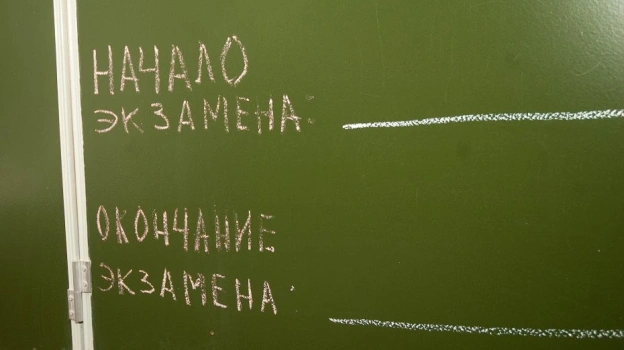 НАЧАЛО
ЭКЗАМЕНА:
ОКОНЧАНИЕ
ЭКЗАМЕНА: